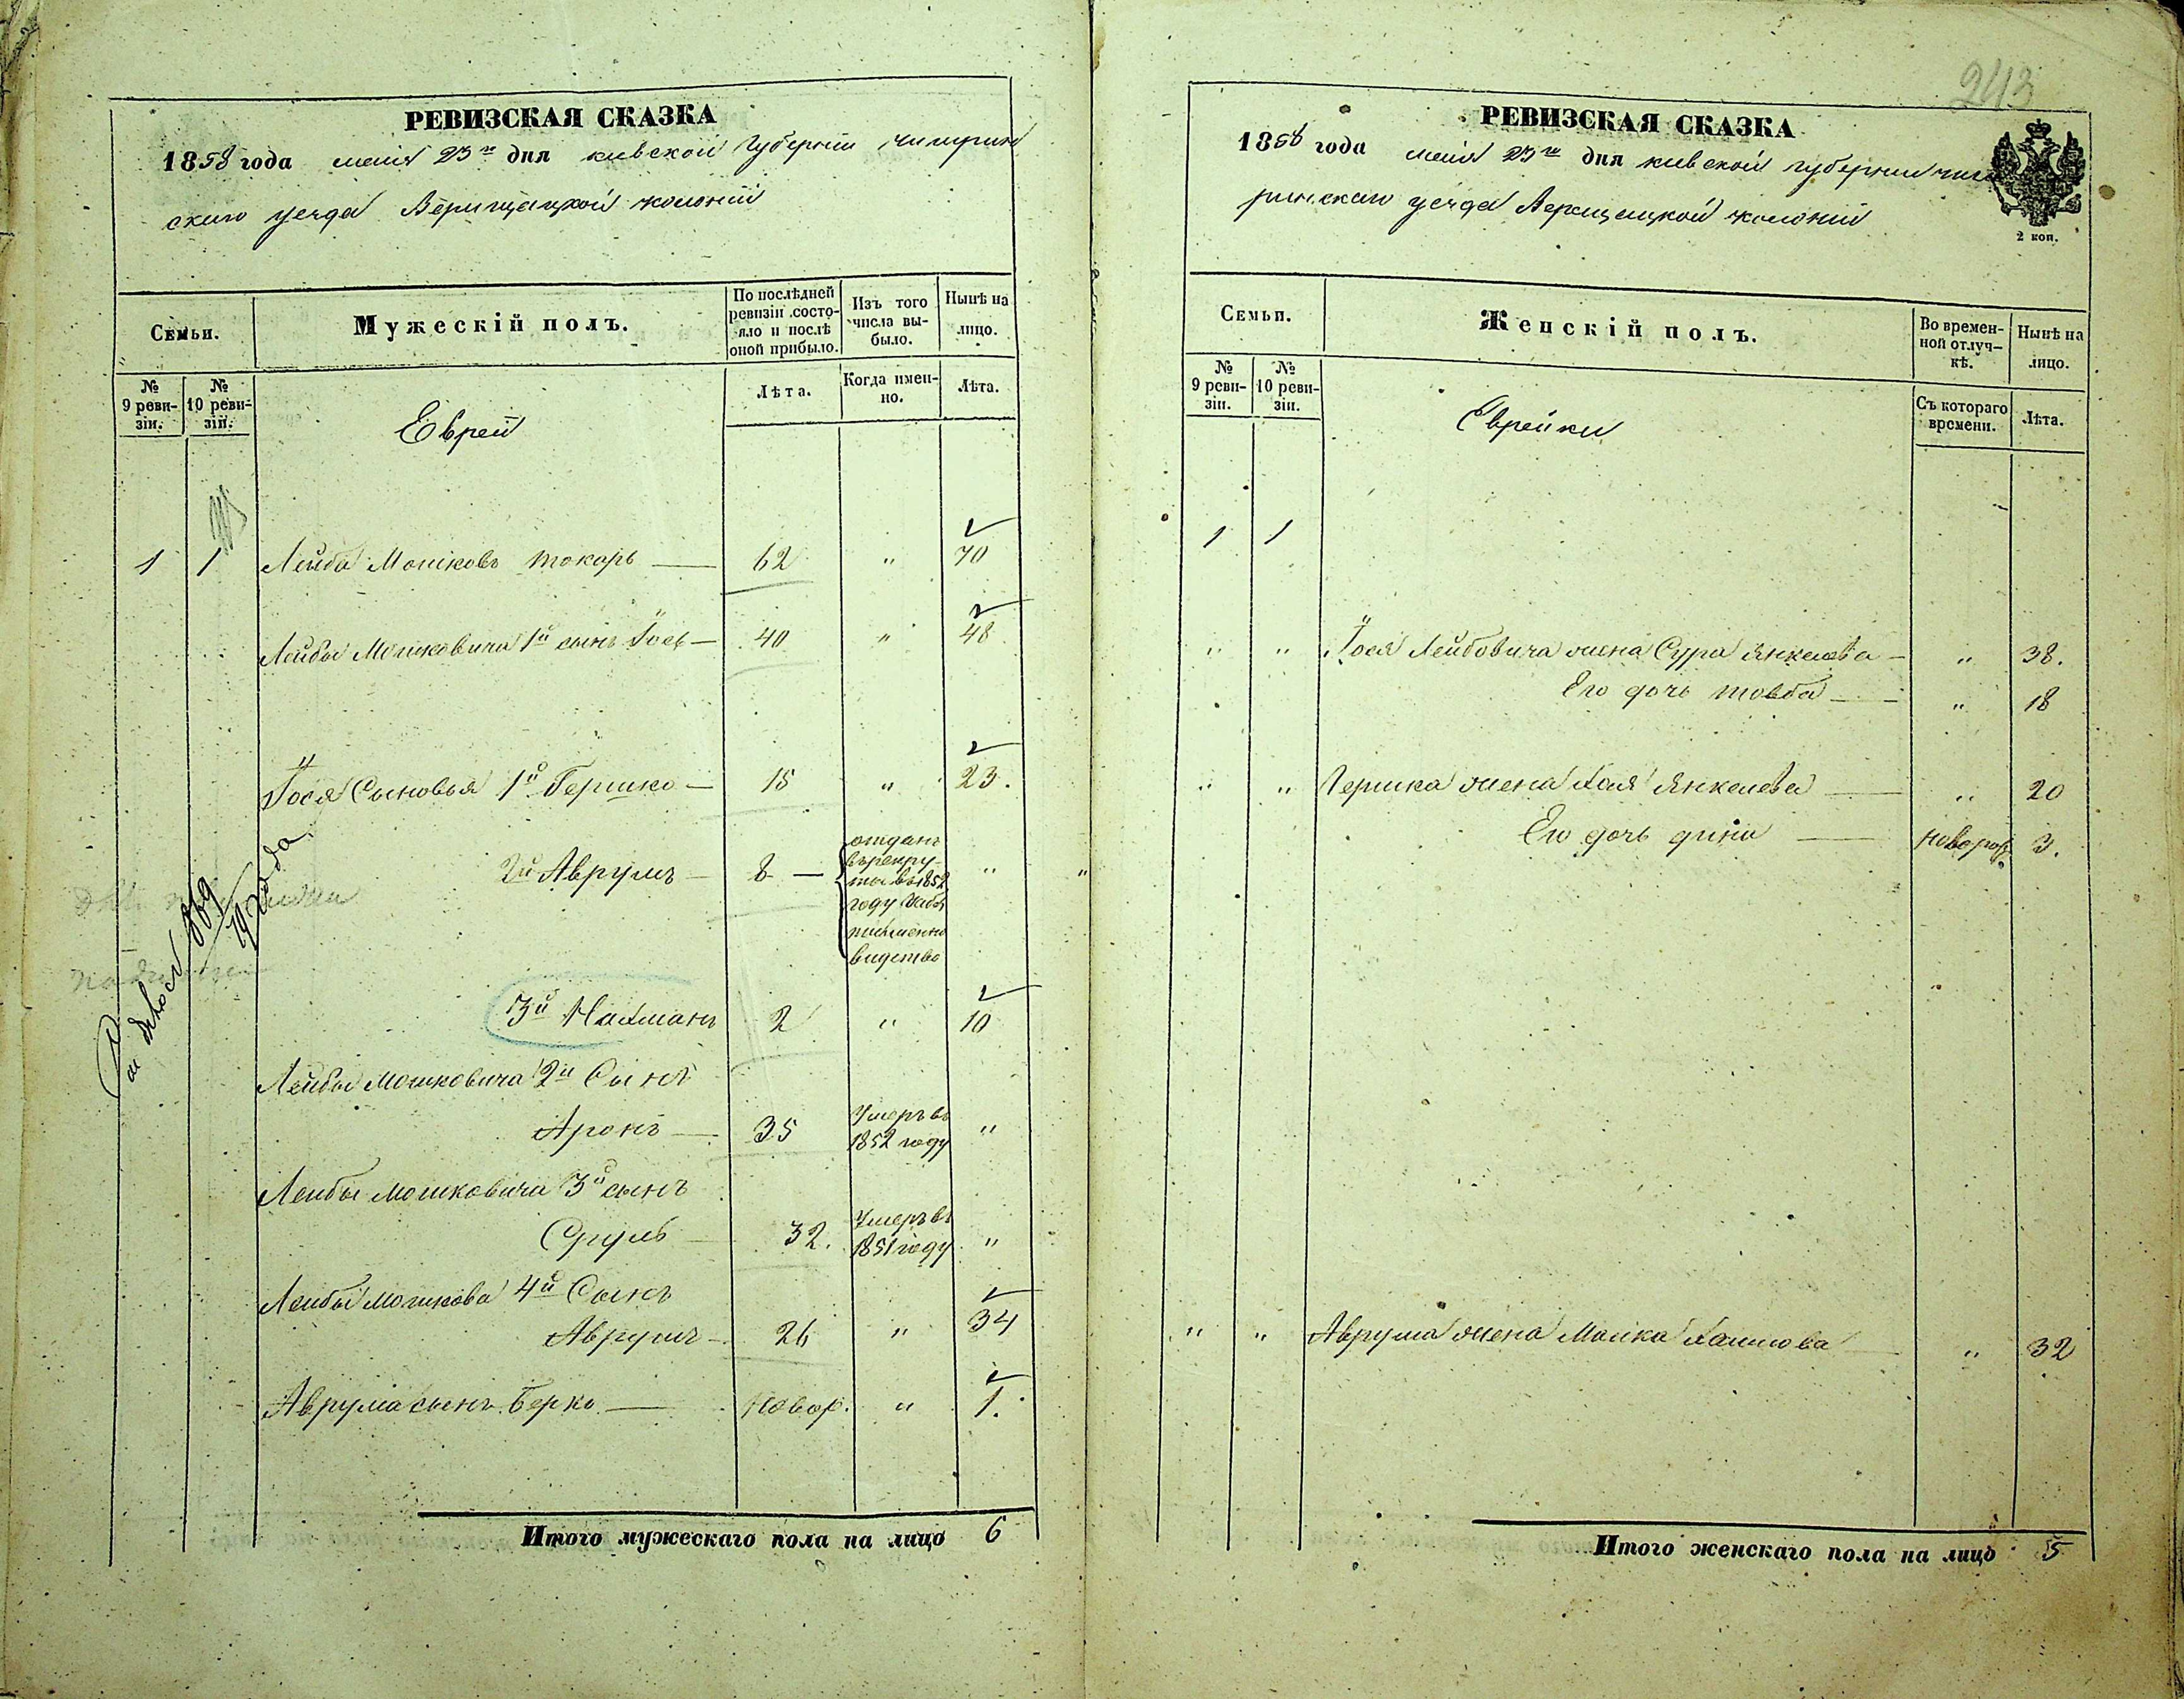 РЕВИЗСКАЯ СКАЗКА
1858 года мая 23го дня киевской Губернии Чигрин
скаго уезда Верищацкой колонии
Семьи.
Мужескій полъ.
По послѣдней ревизіи состояло и послѣ оной прибыло.
Изъ того числа выбыло.
Нынѣ на лицо.
№ 9 ревизіи.
№ 10 ревизіи.
Евреи
Лѣта.
Когда именно.
Лѣта.
1 1 Лейба Мошковъ Токарь — 62 " 70
Лейбы Мошковича 1й сынъ Іось — 40 " 48
Іося Сыновья 1й Гершко — 15 " 23.
2й Аврумъ — 8 —
отданъ
въ рекру-
ты въ 1852
году
"
3й Нахманъ 2 " 10
Лейбы Мошковича 2й Сынъ
Аронъ — 35 Умеръ въ 1852 году "
Лейбы Мошковича 3й сынъ
Сруль — 32. Умеръ въ 1851 году "
Лейбы Мошкова 4й Сынъ
Аврумъ — 26 " 34
Аврума сынъ Берко — Новор. " 1.
Итого мужескаго пола на лицо 6
243
РЕВИЗСКАЯ СКАЗКА
1858 года мая 23го дня киевской губернии чиги
ринскаго уезда Верещацкой колонии
2 коп.
Семьи.
Женскій полъ.
Во временной отлучкѣ.
Нынѣ на лицо.
№ 9 ревизіи.
№ 10 ревизіи.
Еврейки
Съ котораго времени.
Лѣта.
1 1
" " Іося Лейбовича жена Сура Янкелева — " 38.
Его дочь товба — " 18
" " Гершка жена Хая Янкелева — " 20
Его дочь дина — 3.
" " Аврума жена Малка Хаимова " 32
Итого женскаго пола на лицо 5